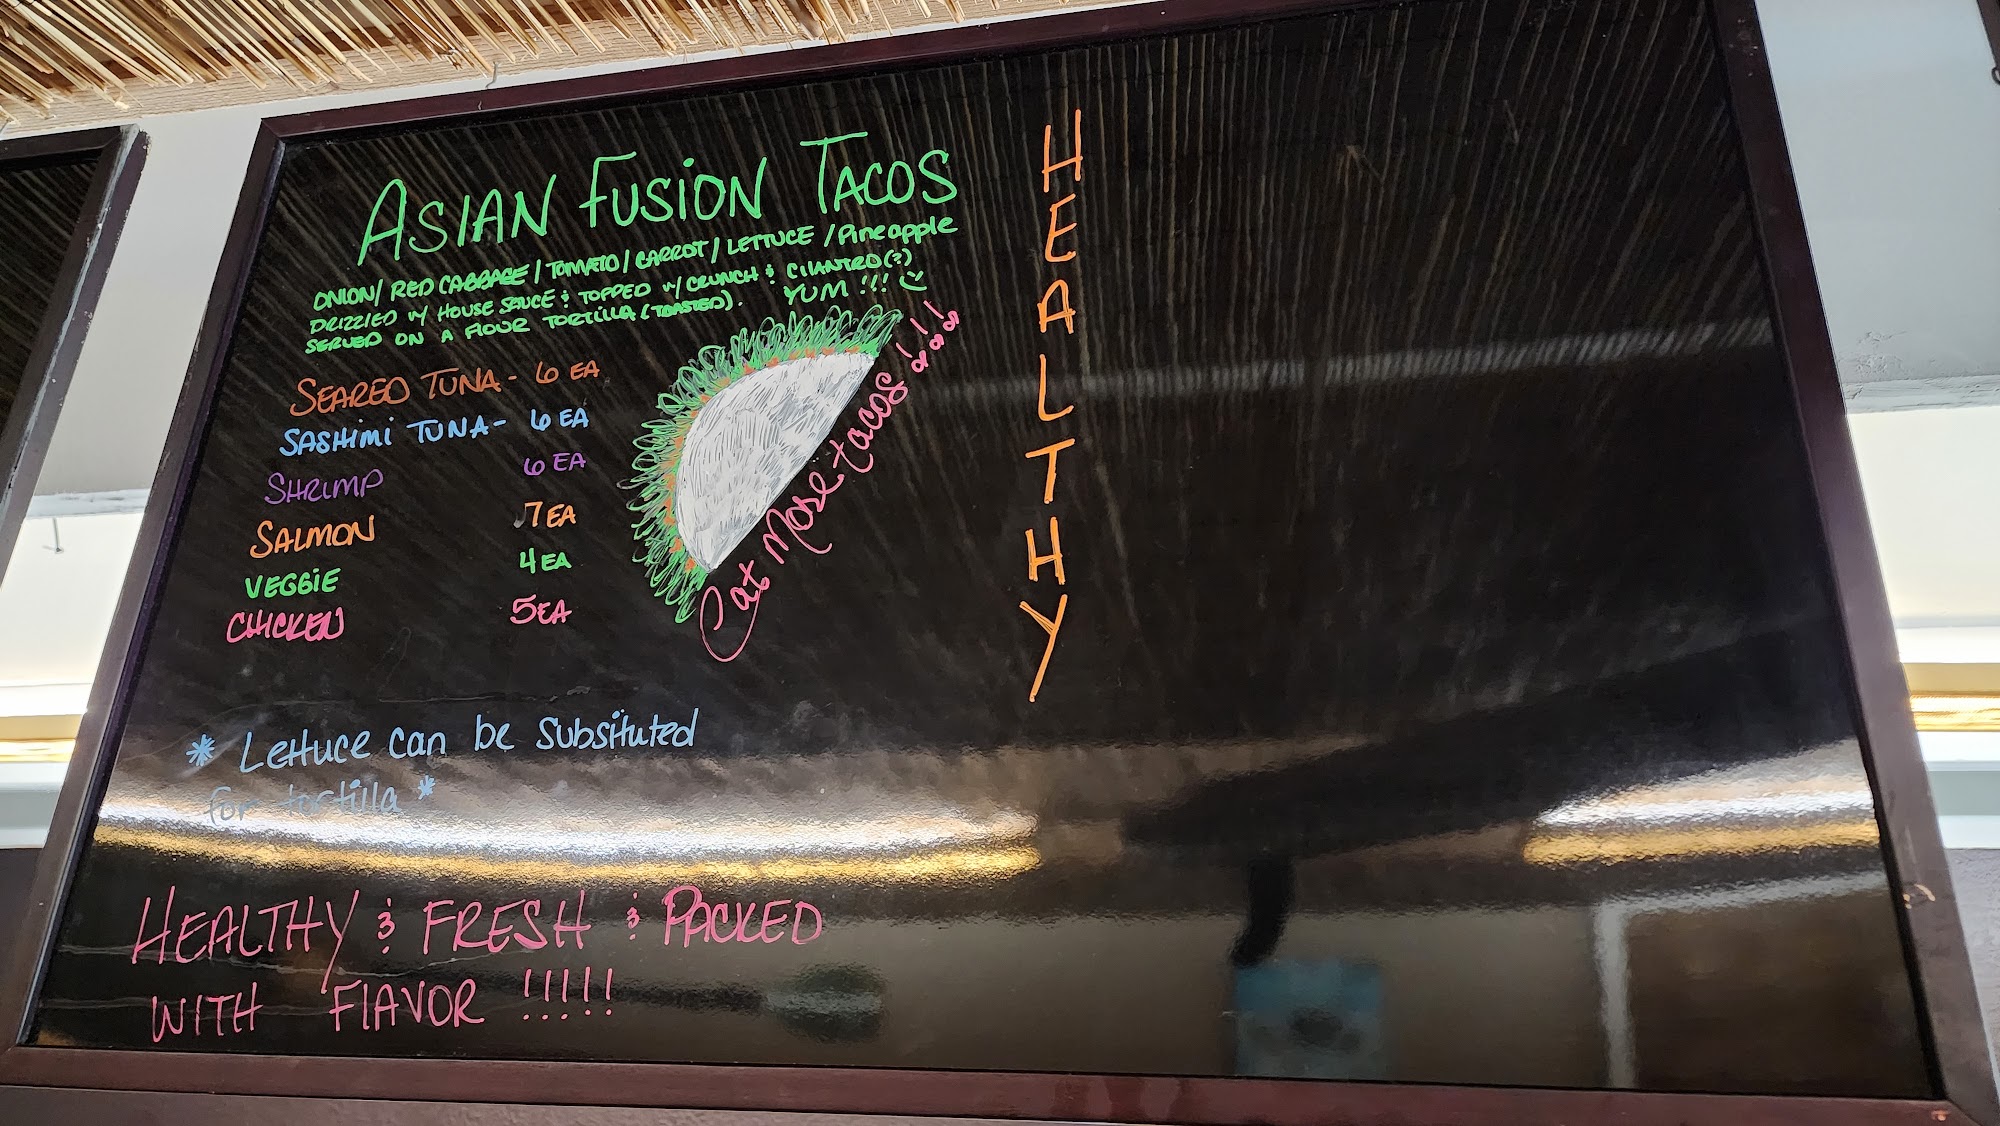 ASIAN FUSION TACOS
ONION / RED CABBAGE / TOMATO / CARROT / LETTUCE / Pineapple
DRIZZLED W/ HOUSE SAUCE & TOPPED W/ CRUNCH & CILANTRO(?)
SERVED ON A FLOUR TORTILLA (TOASTED). YUM !!!
SEARED TUNA - 6 EA
SASHIMI TUNA - 6 EA
SHRIMP 6 EA
SALMON 7 EA
VEGGIE 4 EA
CHICKEN 5 EA
Eat More tacos!!!
* Lettuce can be Subsituted
for tortilla *
HEALTHY & FRESH & PACKED
WITH FlAVOR !!!!!
HEALTHY